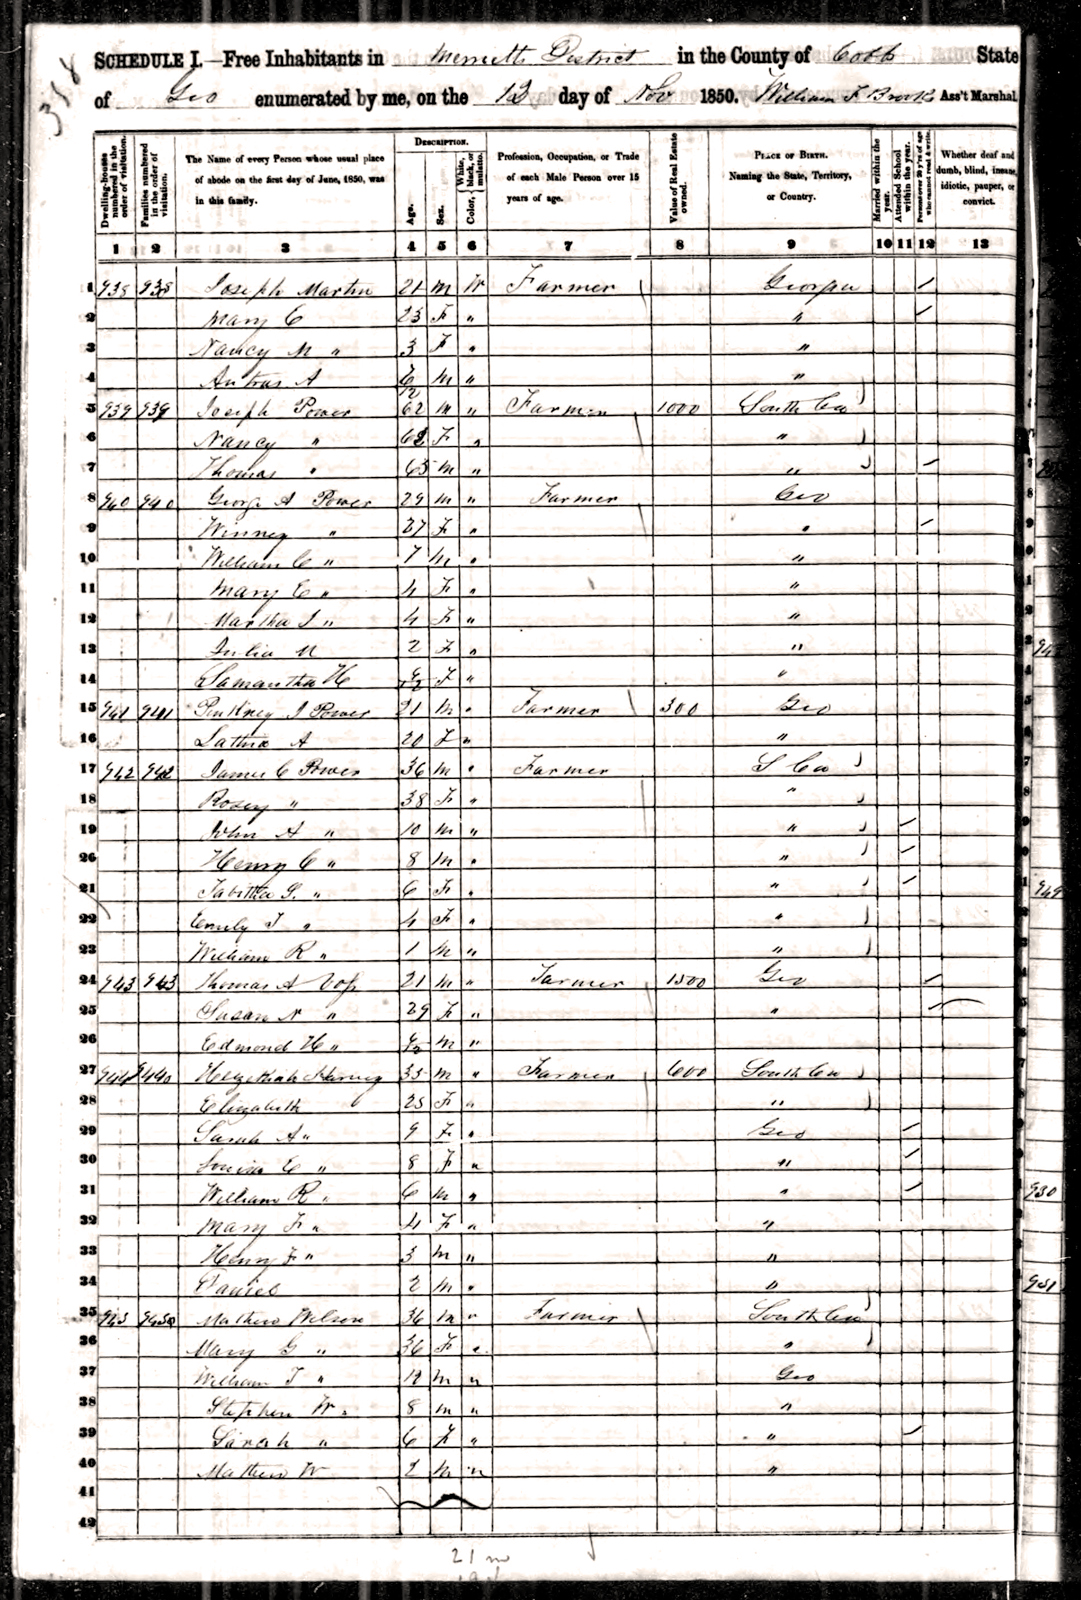 318
SCHEDULE I.—Free Inhabitants in Merretts District in the County of Cobb State
of Geo enumerated by me, on the 13 day of Nov 1850. William F Brooks Ass't Marshal
Dwelling-houses numbered in the order of visitation.
Families numbered in the order of visitation.
The Name of every Person whose usual place of abode on the first day of June, 1850, was in this family.
DESCRIPTION.
Age.
Sex.
Color, { White, black, or mulatto.
Profession, Occupation, or Trade of each Male Person over 15 years of age.
Value of Real Estate owned.
PLACE OF BIRTH. Naming the State, Territory, or Country.
Married within the year.
Attended School within the year.
Persons over 20 y'rs of age who cannot read & write.
Whether deaf and dumb, blind, insane, idiotic, pauper, or convict.
1 2 3 4 5 6 7 8 9 10 11 12 13
1 938 938 Joseph Martin 21 M W Farmer Georgia /
2 Mary C 23 F " " /
3 Nancy M " 3 F " "
4 A 6/12 M " "
5 939 939 Joseph Power 62 M " Farmer 1000 South Ca
6 Nancy " 62 F " "
7 Thomas " M " " /
8 940 940 George A Power 29 M " Farmer Geo
9 Winney " 27 F " " /
10 William C " 7 M " "
11 Mary E " 4 F " "
12 Martha J " 4 F " "
13 Julia M 2 F " "
14 Samantha H F " "
15 941 941 Pinkney J Power 21 M " Farmer 300 Geo
16 A 20 F " "
17 942 942 James C Power 36 M " Farmer S Ca
18 Rosey " 38 F " "
19 John A " 10 M " " /
20 Henry C " 8 M " " /
21 Tabitha S. " 6 F " " /
22 Emily J " 4 F " "
23 William R " 1 M " "
24 943 943 Thomas A 21 M " Farmer 1500 Geo /
25 Susan N " 29 F " " /
26 Edmond H " M "
27 944 Hezekiah 35 M " Farmer 600 South Ca
28 Elizabeth 25 F " "
29 Sarah A " 9 F " Geo /
30 Louisa E " 8 F " " /
31 William R " 6 M " " /
32 Mary F " 4 F " "
33 Henry F " 3 M " "
34 Daniel 2 M " "
35 945 945 Mathew Wilson 36 M " Farmer South Ca
36 Mary G " 36 F " "
37 William T " 12 M " Geo
38 Stephen W " 8 M " "
39 Sarah " 6 F " " /
40 Mathew W 2 M " "
41
42
21 m